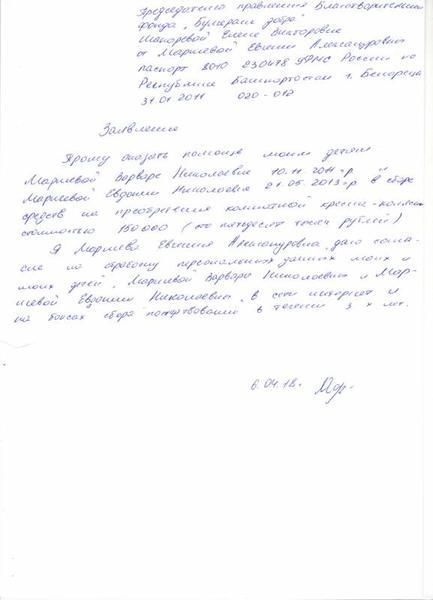 Председателю правления Благотворительного
фонда "Бумеранг добра"
Шапоревой Елене Викторовне
от Маршевой Евгении Александровны
паспорт 8010 930478 УФМС России по
Республике Башкортостан г. Белорецк
31.01.2011 020-012
Заявление
Прошу оказать помощь моим детям
Маршевой Варваре Николаевне 10.11.2011 г.р.
Маршевой Евдокии Николаевне 21.05.2013 г.р. в сборе
средств на приобретение комнатной кресла-коляски
стоимостью 150 000 (сто пятьдесят тысяч рублей)
Я Маршева Евгения Александровна, даю согла-
сие на обработку персональных данных моих и
моих детей, Маршевой Варвары Николаевны и Мар-
шевой Евдокии Николаевны, в сети интернет и
на боксах сбора пожертвований в течении 3-х лет.
6.04.18г.